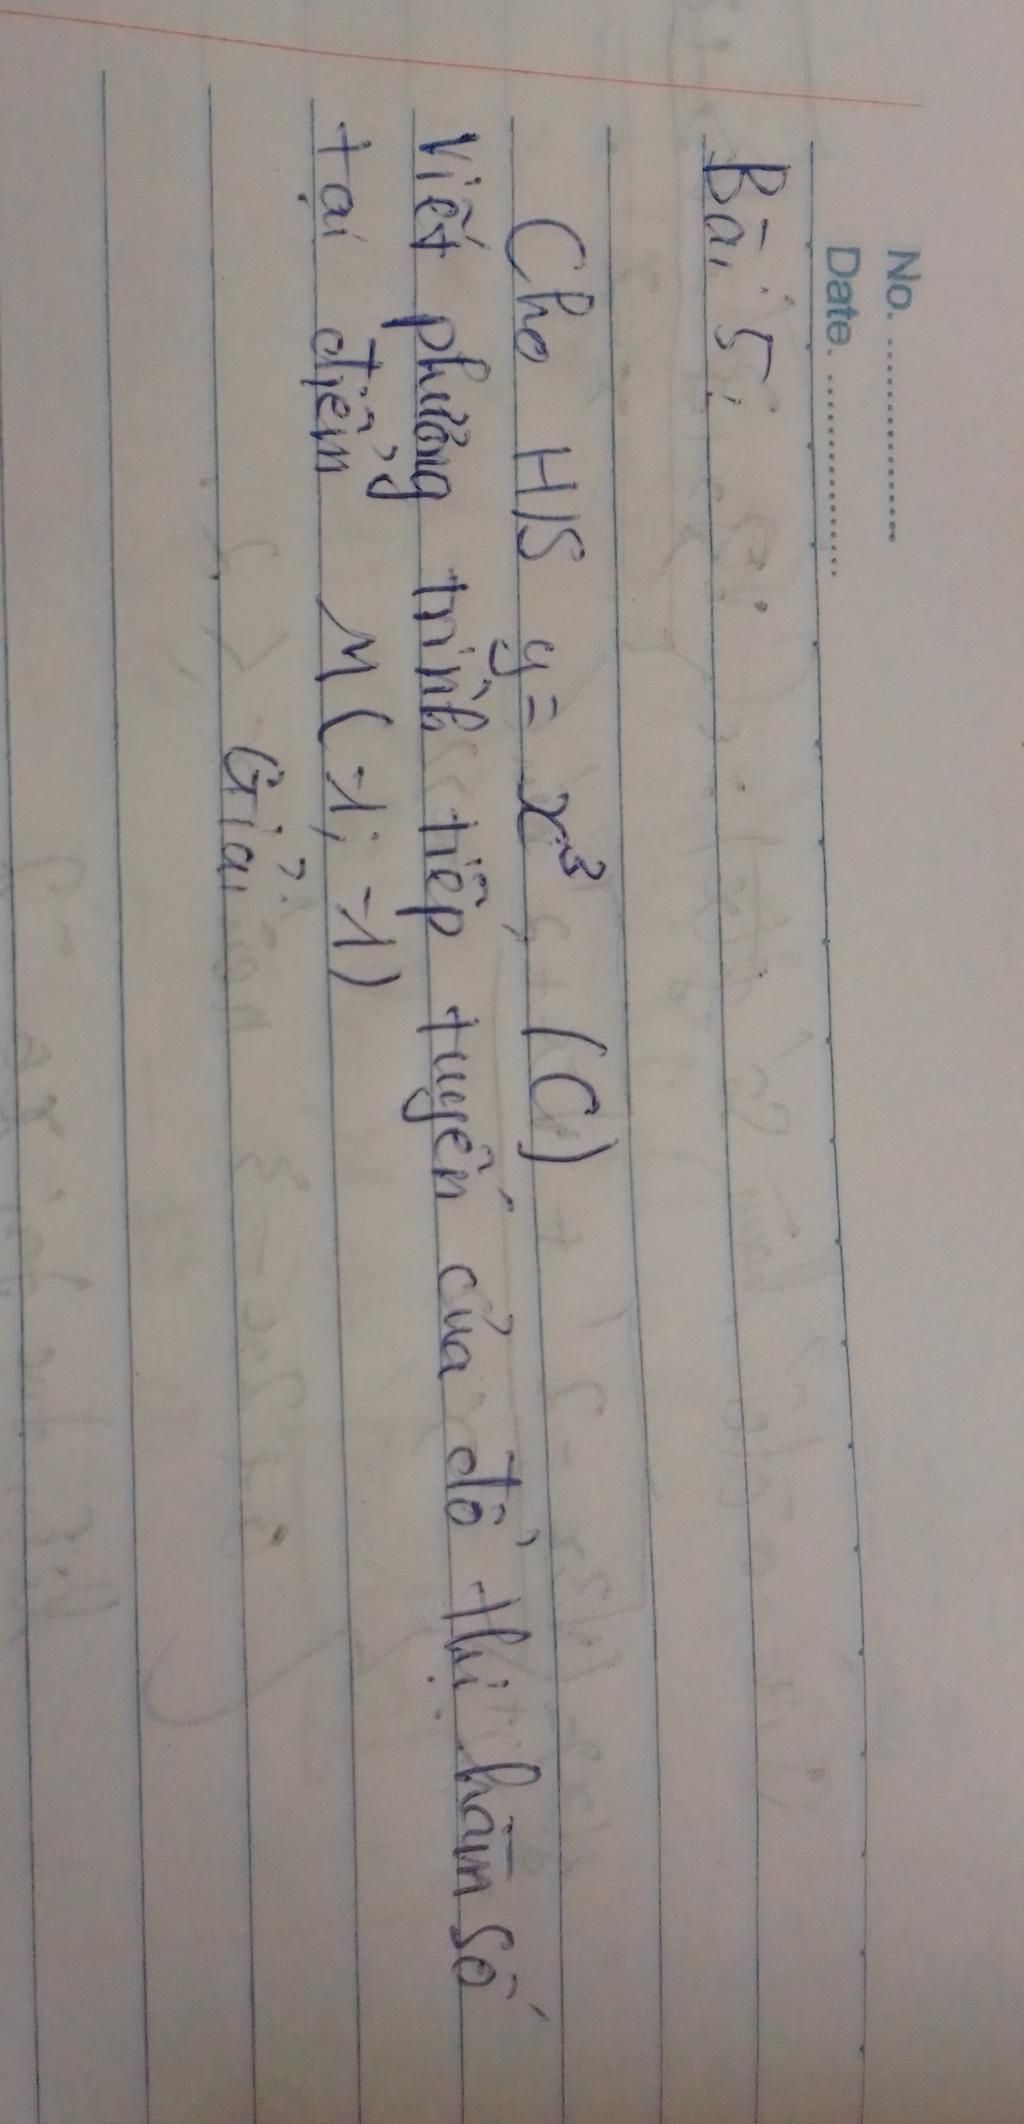 No. ....................
Date. ....................
Bài 5:
Cho H/S y = x³, (C)
Viết phương trình tiếp tuyến của đồ thị hàm số
tại điểm M(-1; -1)
Giải